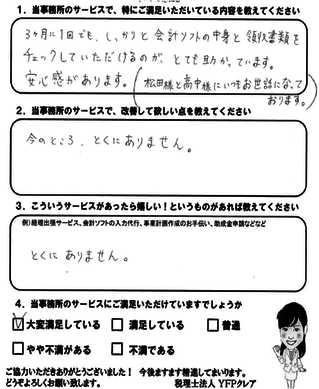 1．当事務所のサービスで、特にご満足いただいている内容を教えてください
3ヶ月に1回でも、しっかりと会計ソフトの中身と領収書類を
チェックしていただけるのが、とても助かっています。
安心感があります。（松田様と高中様にいつもお世話になって
おります。）
2．当事務所のサービスで、改善して欲しい点を教えてください
今のところ、とくにありません。
3．こういうサービスがあったら嬉しい！というものがあれば教えてください
例）経理出張サービス、会計ソフトの入力代行、事業計画作成のお手伝い、助成金申請などなど
とくにありません。
4．当事務所のサービスにご満足いただけていますでしょうか
☑大変満足している □満足している □普通
□やや不満がある □不満である
ご協力いただきありがとうございました！ 今後ますます精進してまいります。
どうぞよろしくお願い致します。 税理士法人 YFPクレア